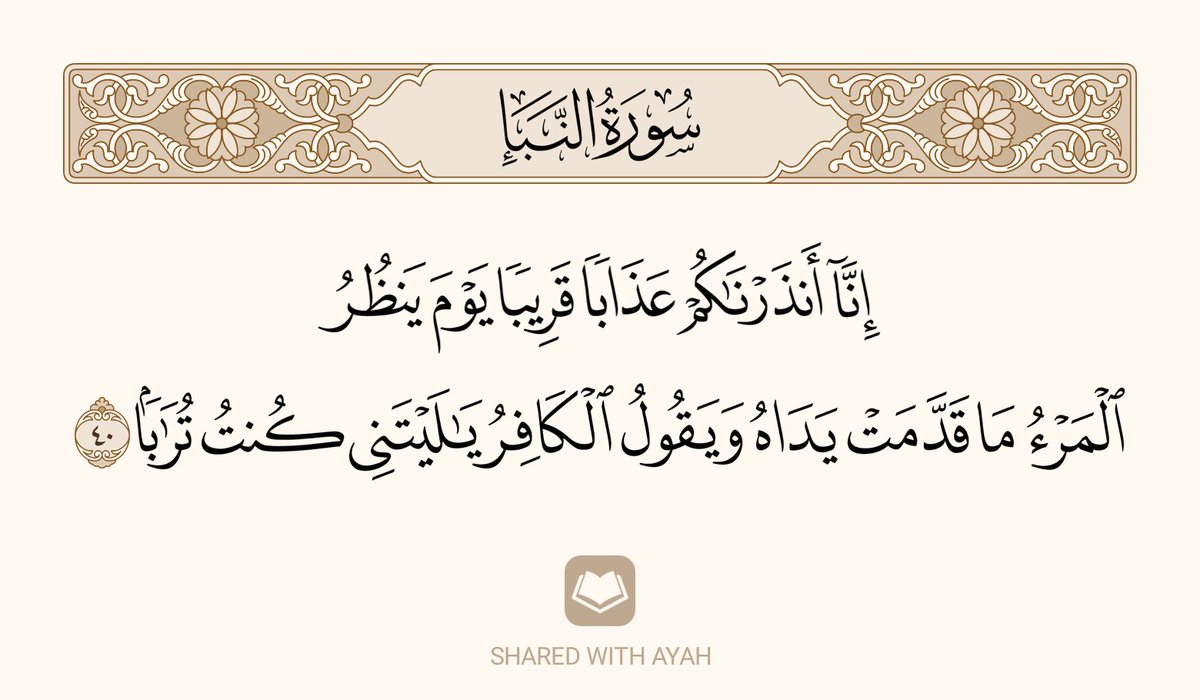 سُورَةُ النَّبَإِ
إِنَّآ أَنذَرْنَٰكُمْ عَذَابًا قَرِيبًا يَوْمَ يَنظُرُ
ٱلْمَرْءُ مَا قَدَّمَتْ يَدَاهُ وَيَقُولُ ٱلْكَافِرُ يَٰلَيْتَنِى كُنتُ تُرَٰبًۢا ٤٠
SHARED WITH AYAH